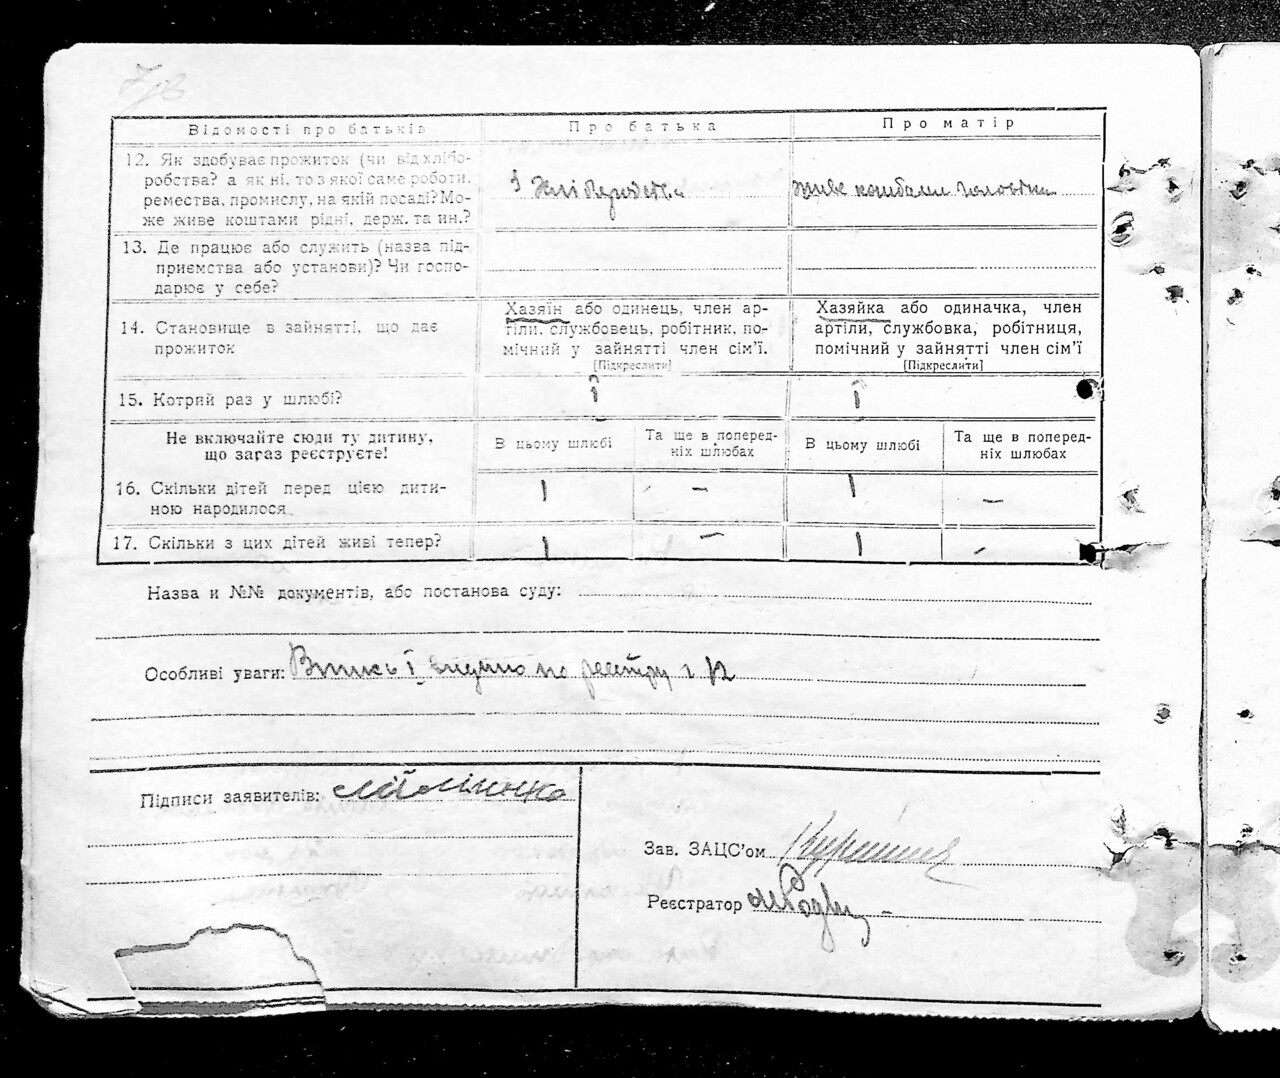 Відомості про батьків
Про батька
Про матір
12. Як здобуває прожиток (чи від хлібо-
робства? а як ні, то з якої саме роботи,
ремества, промислу, на якій посаді? Мо-
же живе коштами рідні, держ. та ин.?
З хліборобства
живе коштами чоловіка
13. Де працює або служить (назва під-
приємства або установи)? Чи госпо-
дарює у себе?
14. Становище в зайнятті, що дає
прожиток
Хазяїн або одинець, член ар-
тіли, службовець, робітник, по-
мічний у зайнятті член сім’ї.
[Підкреслити]
Хазяйка або одиначка, член
артіли, службовка, робітниця,
помічний у зайнятті член сім’ї
[Підкреслити]
15. Котрий раз у шлюбі?
І
І
Не включайте сюди ту дитину,
що загаз реєструєте!
В цьому шлюбі
Та ще в поперед-
ніх шлюбах
В цьому шлюбі
Та ще в поперед-
ніх шлюбах
16. Скільки дітей перед цією дити-
ною народилося
1
–
1
–
17. Скільки з цих дітей живі тепер?
1
–
1
–
Назва и №№ документів, або постанова суду:
Особливі уваги: по реєстру
Підписи заявителів:
Зав. ЗАЦС’ом
Реєстратор